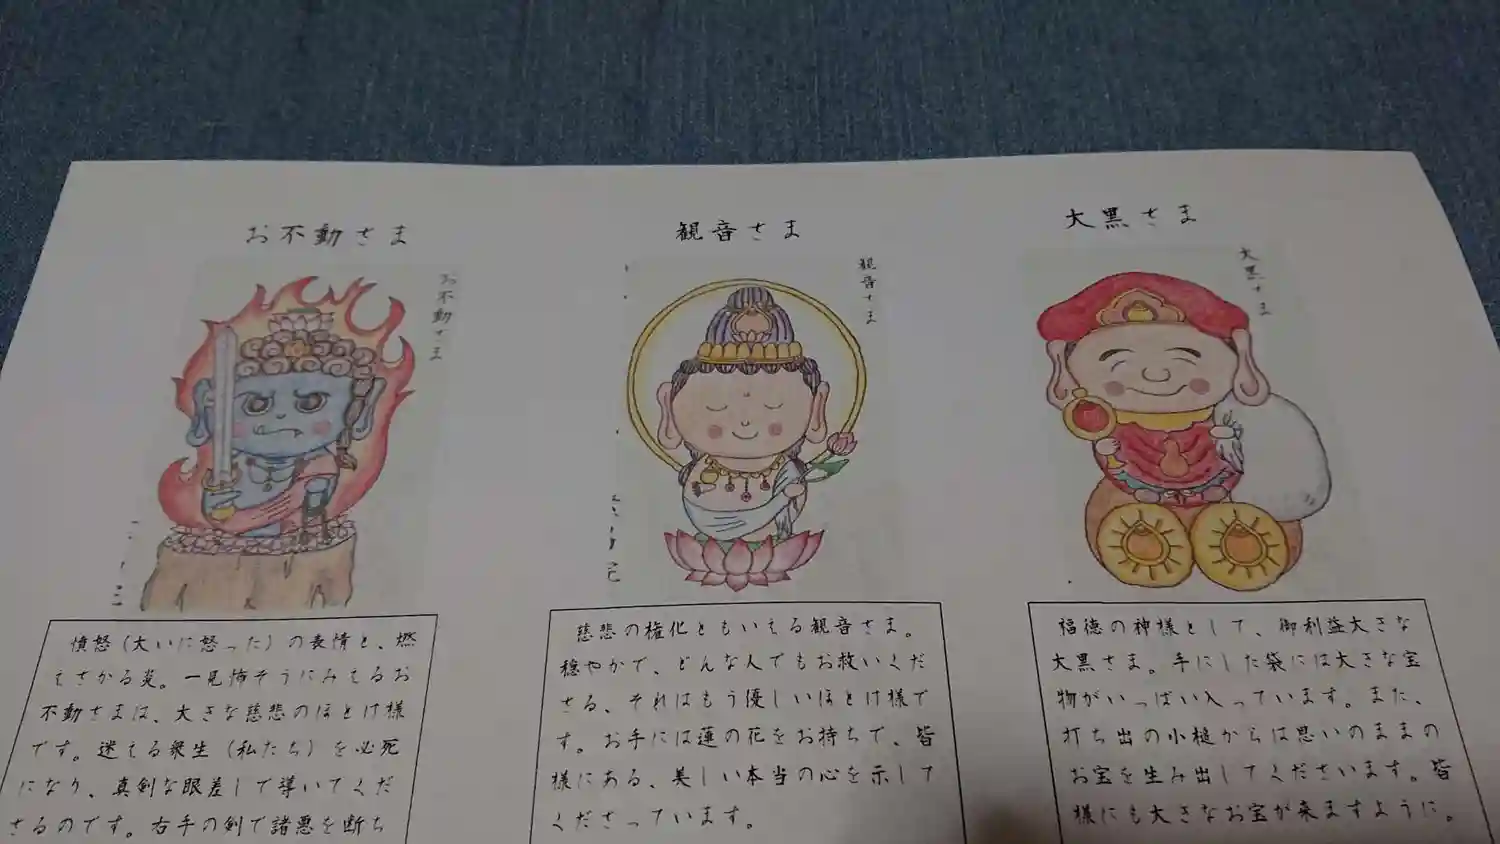 お不動さま
お不動さま
憤怒（大いに怒った）の表情と、燃
えさかる炎。一見怖そうにみえるお
不動さまは、大きな慈悲のほとけ様
です。迷える衆生（私たち）を必死
になり、真剣な眼差しで導いてくだ
さるのです。右手の剣で諸悪を断ち
観音さま
観音さま
慈悲の権化ともいえる観音さま。
穏やかで、どんな人でもお救いくだ
さる、それはもう優しいほとけ様で
す。お手には蓮の花をお持ちで、皆
様にある、美しい本当の心を示して
くださっています。
大黒さま
大黒さま
福徳の神様として、御利益大きな
大黒さま。手にした袋には大きな宝
物がいっぱい入っています。また、
打ち出の小槌からは思いのままの
お宝を生み出してくださいます。皆
様にも大きなお宝が来ますように。